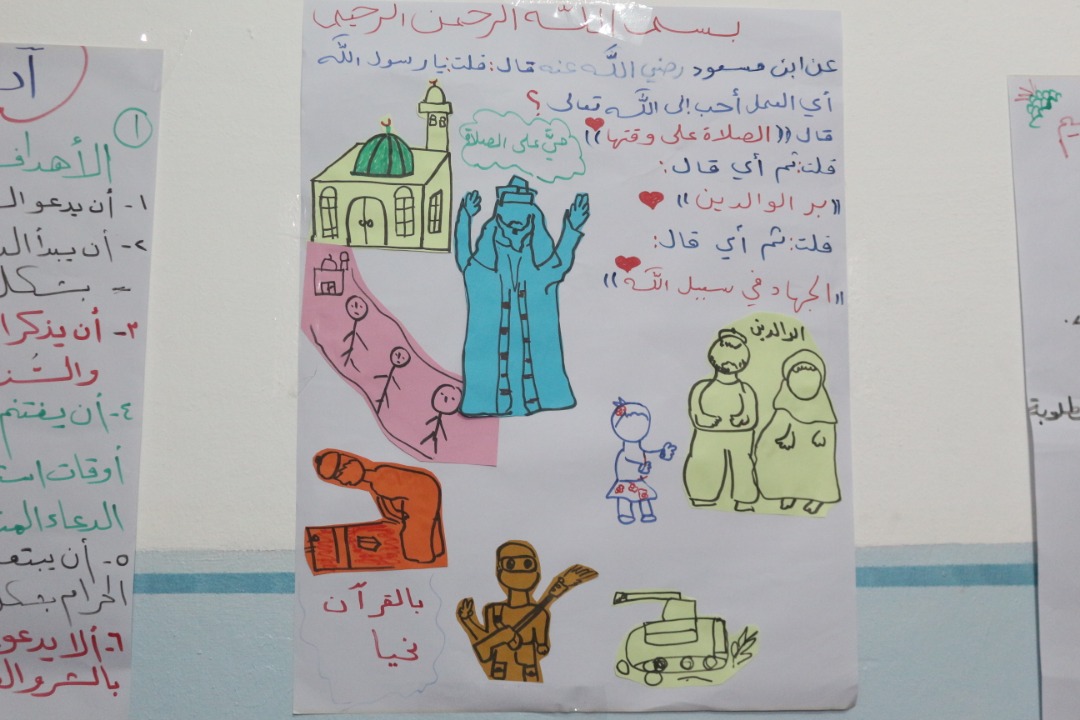 بسم الله الرحمن الرحيم
عن ابن مسعود رضي الله عنه قال: قلت: يا رسول الله
أي العمل أحب إلى الله تعالى ؟
قال ((الصلاة على وقتها))
قلت: ثم أي قال:
((بر الوالدين))
قلت: ثم أي قال:
((الجهاد في سبيل الله))
حيَّ على الصلاة
الوالدين
بالقرآن
نحيا
١
الأهداف
١- أن يدعو
٢- أن يبدأ
- بشكل
٣- أن يذكر
٤- أن يغتنم
أوقات
الدعاء
٥- أن يبتعد
الحرام بشكل
٦- ألا يدعو
بالشر